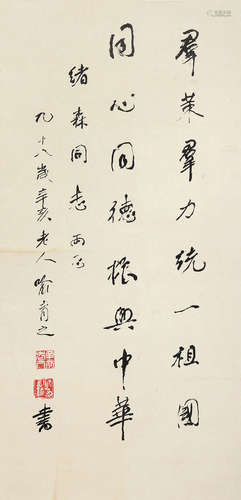 群策群力统一祖国
同心同德振興中華
绪森同志 两正
九十八歲辛亥老人喻育之
書